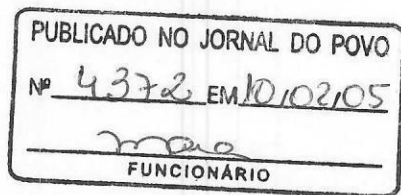 PUBLICADO NO JORNAL DO POVO
Nº 4372 EM 10,02,05
FUNCIONÁRIO